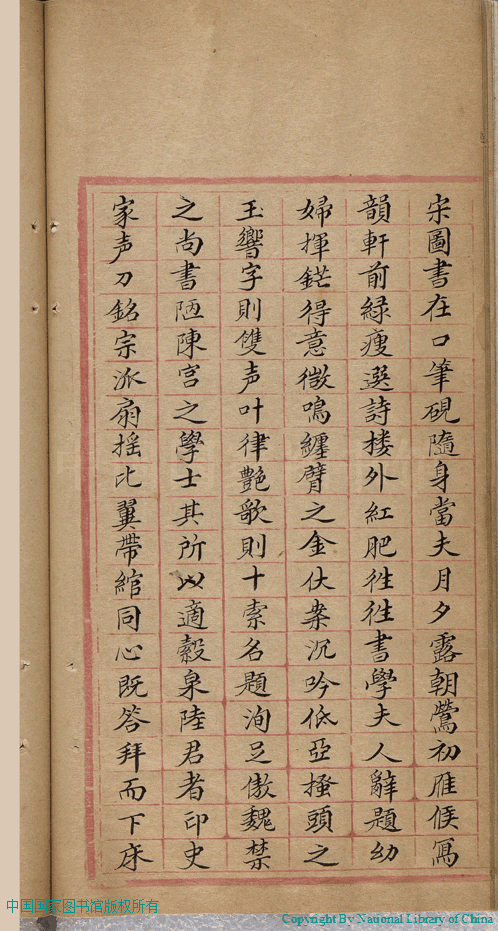 宋圖書在口筆硯隨身當夫月夕露朝鶯初雁候寫
韻軒前緑瘦選詩楼外紅肥徃徃書學夫人辭題幼
婦揮鋩得意微鳴纏臂之金伏案沉吟低亞搔頭之
玉響字則雙声叶律艶歌則十索名題洵足傲魏禁
之尚書陋陳宫之學士其所以適縠泉陸君者印史
家声刀銘宗派扇揺比翼帶綰同心既答拜而下床
中国国家图书馆版权所有
Copyright By National Library of China